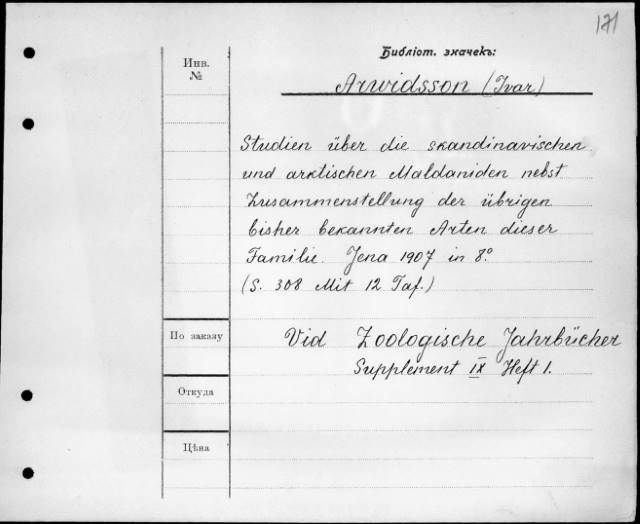 171
Библіот. значекъ:
Инв.
№
Arwidsson (Ivar)
Studien über die skandinavischen
und arktischen Maldaniden nebst
Zusammenstellung der übrigen
bisher bekannten Arten dieser
Familie. Jena 1907 in 8°.
(S. 308 Mit 12 Taf.)
По заказу
Vid Zoologische Jahrbücher
Supplement IX Heft 1.
Откуда
Цѣна